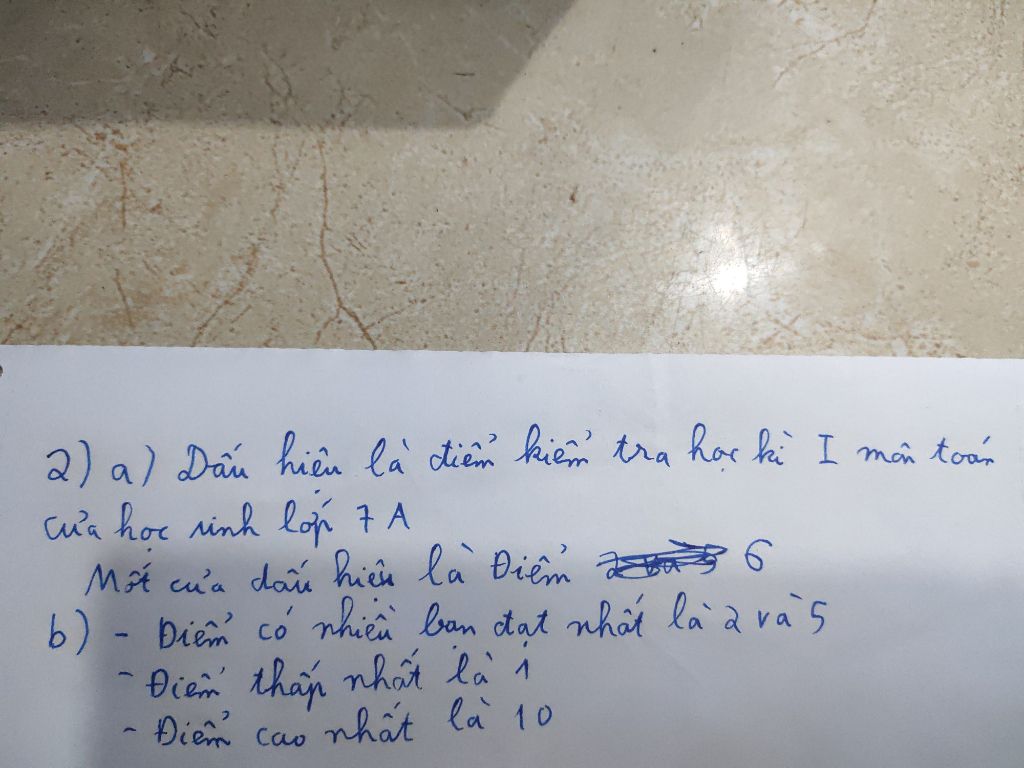 2) a) Dấu hiệu là điểm kiểm tra học kì I môn toán
của học sinh lớp 7A
Mốt của dấu hiệu là Điểm 6
b) - Điểm có nhiều bạn đạt nhất là 2 và 5
- Điểm thấp nhất là 1
- Điểm cao nhất là 10